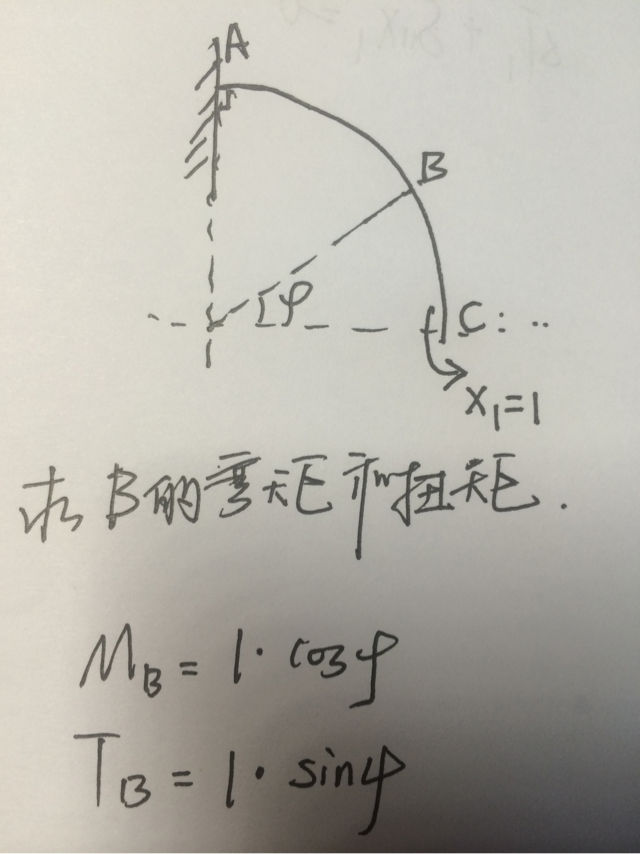 A
B
φ
C: ..
X₁=1
求B的弯矩和扭矩.
M_B = 1· cosφ
T_B = 1· sinφ